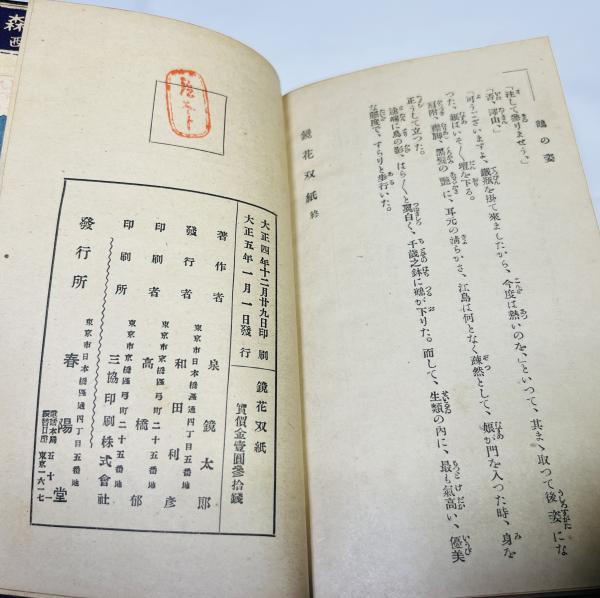 鶴の姿
「注して參りませう。」
「否、澤山。」
「可うございますよ、鐵瓶を掛て來ましたから、今度は熱いのを、」といつて、其まゝ取つて後姿にな
つた。銀はいそ〱壇を下る。
肩附、撫脚、黒髪の艶に、耳元の清らかさ、江島は何となく竦然として、娘が門を入つた時、身を
正うして立つた。
途端に鳥の影、はら〱と翼白く、千歳之鉢に鶴が下りた。而して、生類の内に、最も氣高い、優美
な態度で、すらりと歩行いた。
鏡花双紙 終
大正四年十二月廿九日印刷
大正五年一月一日發行
鏡花双紙
實價金壹圓參拾錢
著作者 泉鏡太郎
東京市日本橋區通四丁目五番地
發行者 和田利彦
東京市京橋區弓町二十五番地
印刷者 高橋郁
東京市京橋區弓町二十五番地
印刷所 三協印刷株式會社
東京市日本橋區通四丁目五番地
發行所 春陽堂
電話本局 五十一
振替口座 東京一六一七
森
西